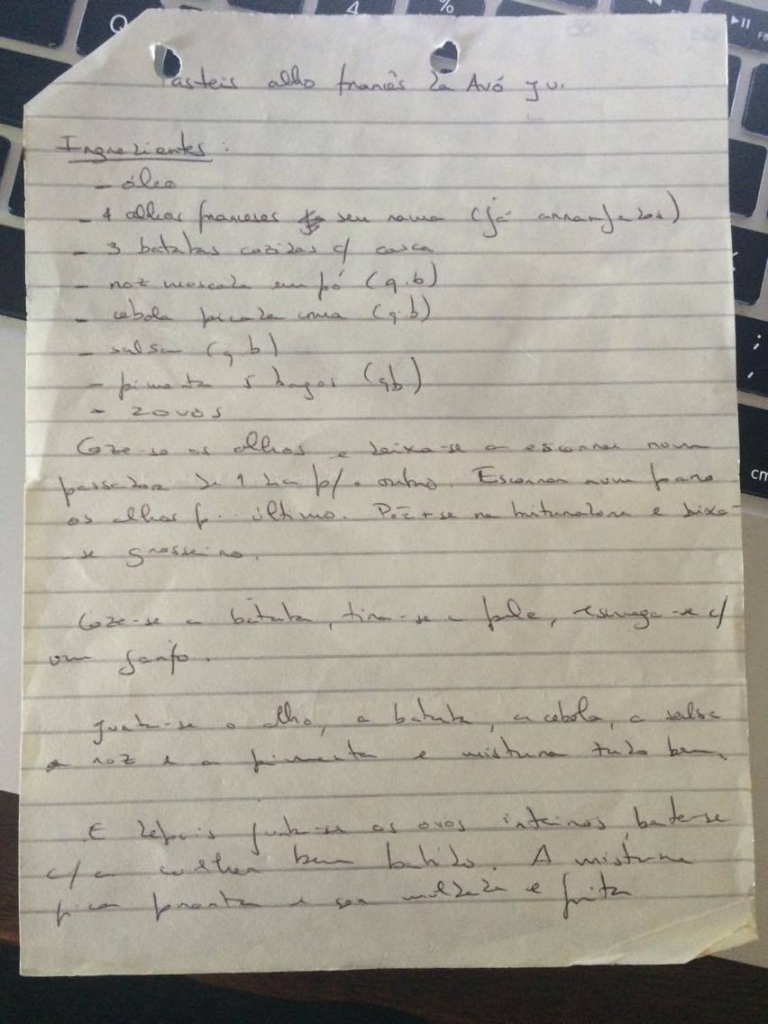 Pasteis alho francês da Avó Ju.
Ingredientes:
- óleo
- 4 alhos franceses seu rama (já arranjados)
- 3 batatas cozidas c/ casca
- noz moscada em pó (q.b)
- cebola picada crua (q.b)
- salsa (q b)
- pimenta 5 bagas (qb)
- 2 ovos
Coze-se os alhos e deixa-se a escorrer num
passador de 1 dia p/ o outro. Escorrer num pano
os alhos p. último. Põe-se na trituradora e deixa-
se grosseiro.
Coze-se a batata, tira-se a pele, esmaga-se c/
um garfo.
Junta-se o alho, a batata, a cebola, a salsa
a noz e a pimenta e mistura tudo bem.
E depois junta-se os ovos inteiros bate-se
c/ a colher bem batido. A mistura
fica pronta a ser moldada e frita